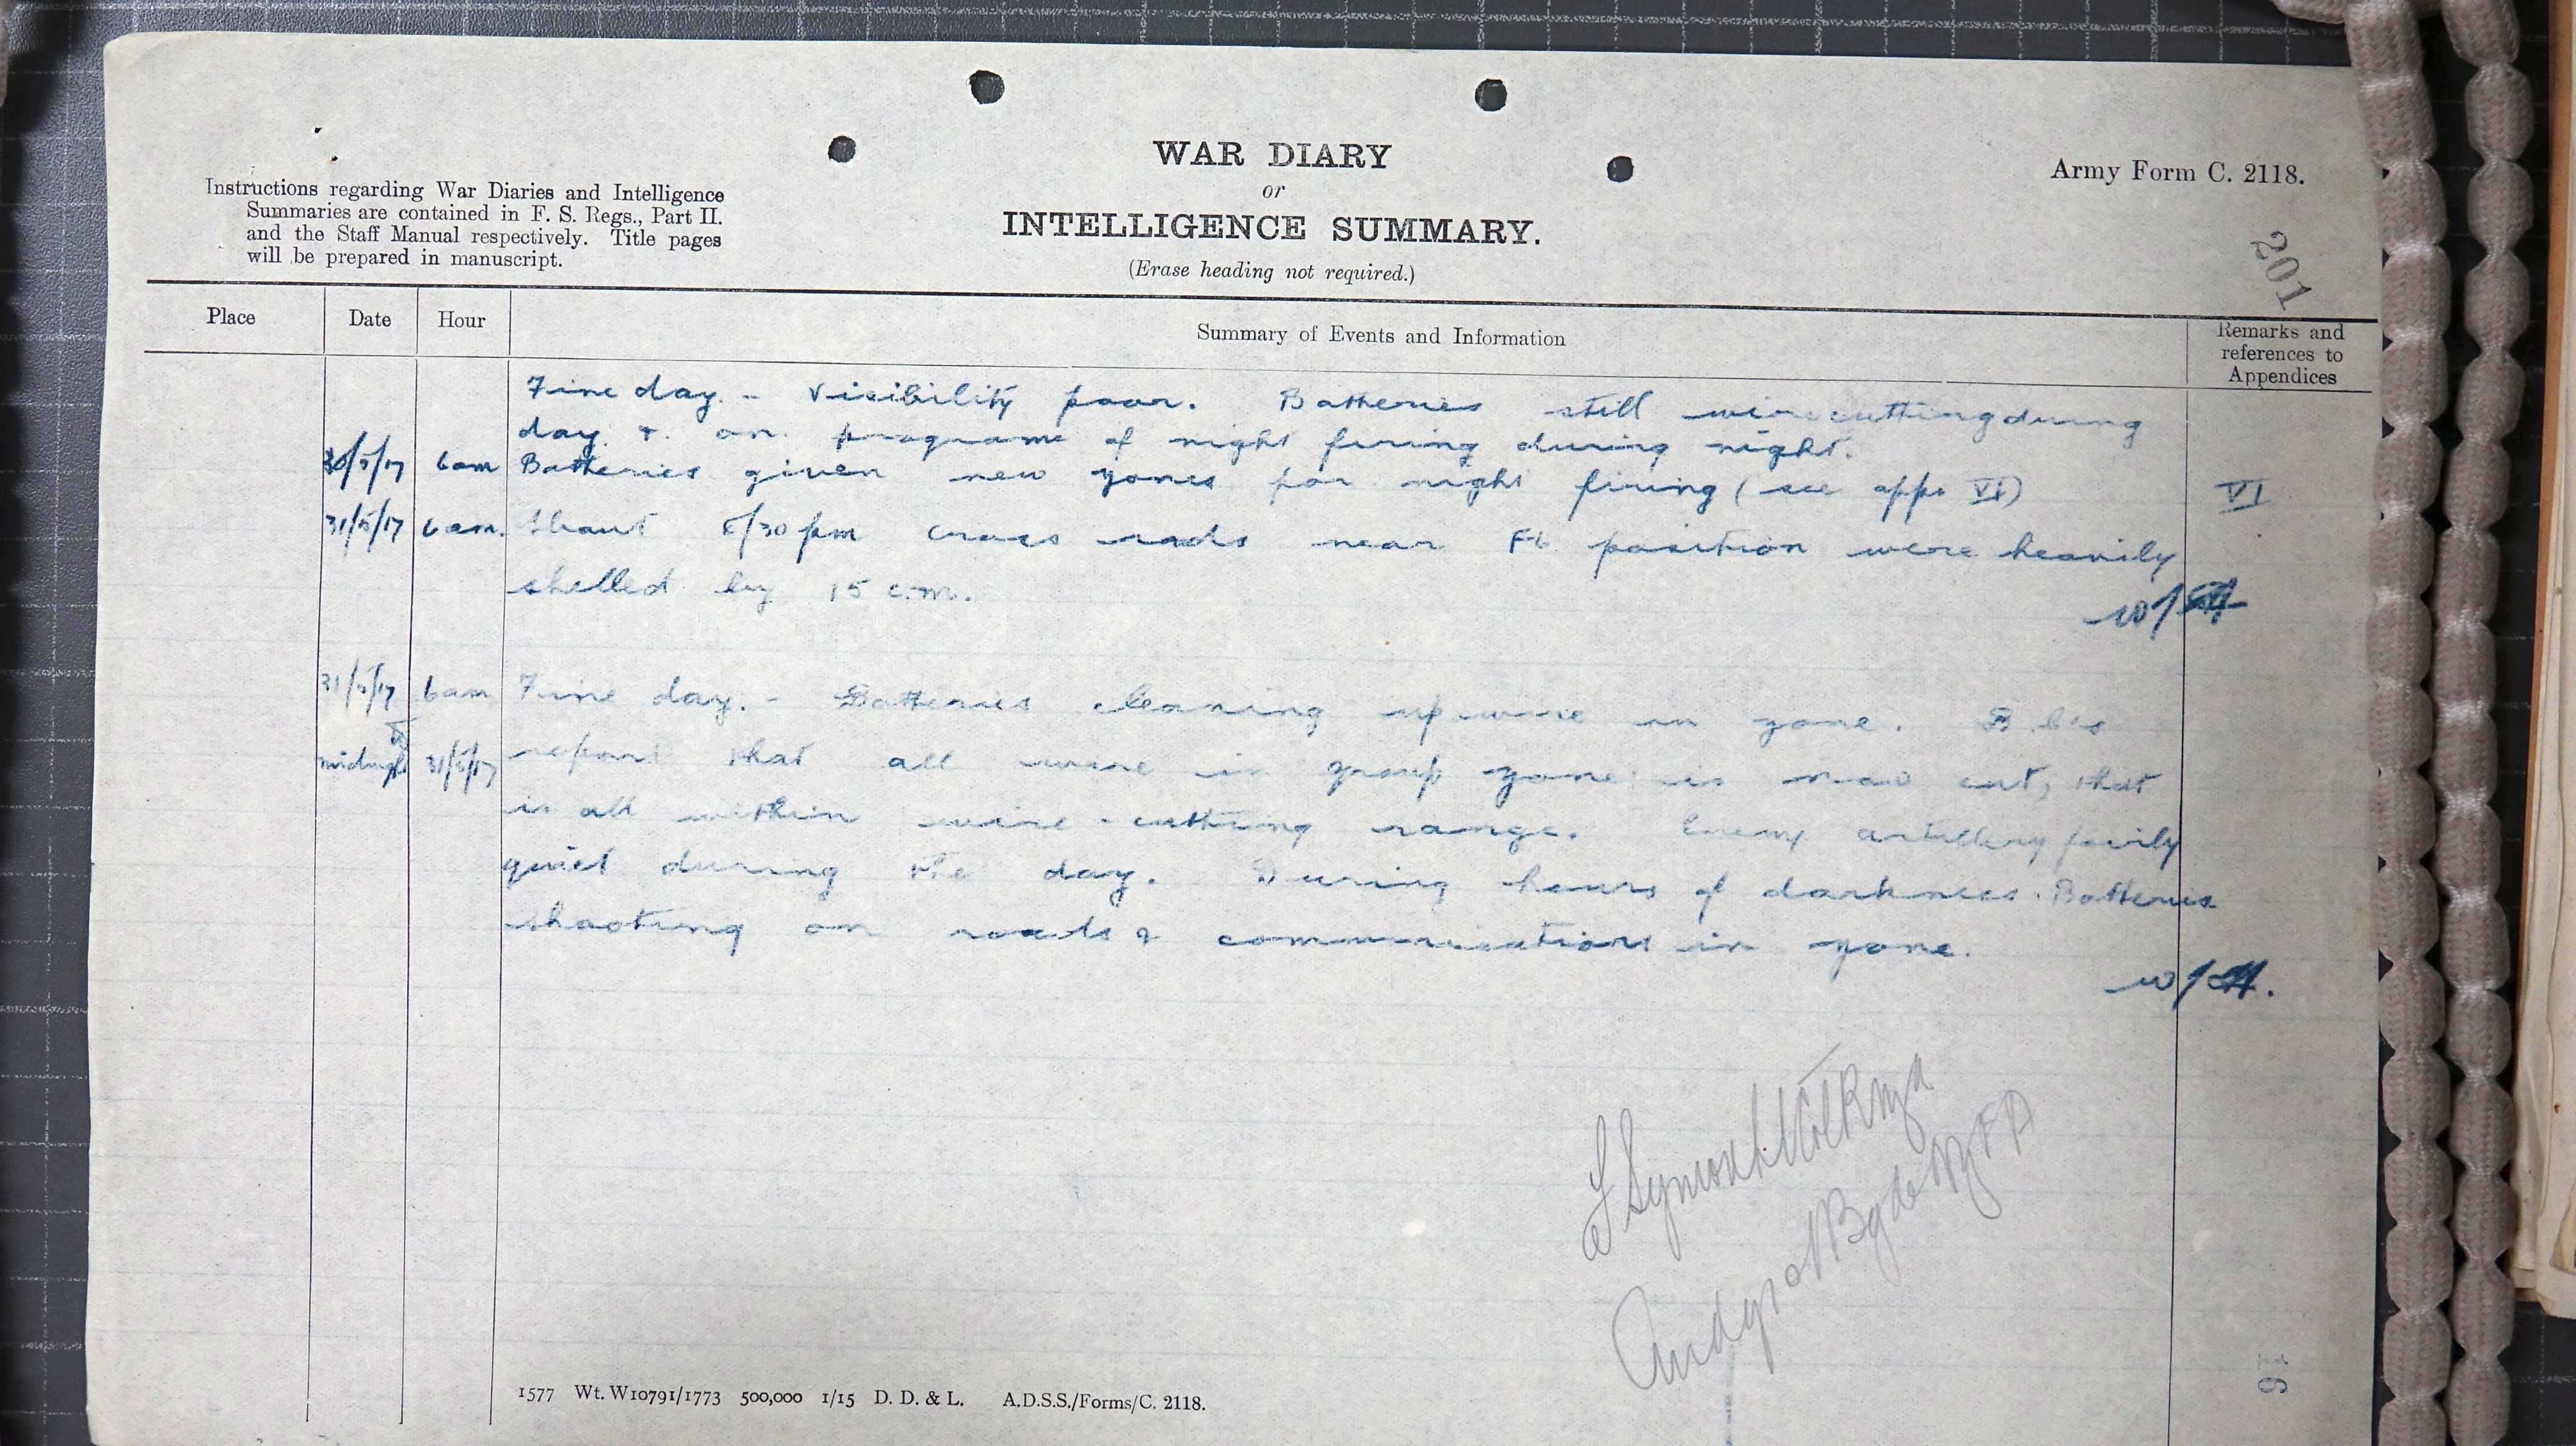 WAR DIARY
or
INTELLIGENCE SUMMARY.
(Erase heading not required.)
Army Form C. 2118.
Instructions regarding War Diaries and Intelligence
Summaries are contained in F. S. Regs., Part II.
and the Staff Manual respectively. Title pages
will be prepared in manuscript.
201
Place Date Hour Summary of Events and Information Remarks and references to Appendices
Fine day. - Visibility poor. Batteries still wirecutting during
day. & on programe of night firing during night.
30/5/17 6am Batteries given new zones for night firing (see appx VI) VI
31/5/17 6am. About 8/30 pm cross roads near position were heavily
shelled by 15 c.m.
31/5/17 6am Fine day. - Batteries cleaning up wire in zone. B.C's
to
midnight 31/5/17 report that all wire in group zone is now cut, that
is all within wire-cutting range. Enemy artillery fairly
quiet during the day. During hours of darkness. Batteries
shooting on roads & communications in zone.
F Symon Lt Col RNZA
Bgde NZFA
1577 Wt. W10791/1773 500,000 1/15 D. D. & L. A.D.S.S./Forms/C. 2118.